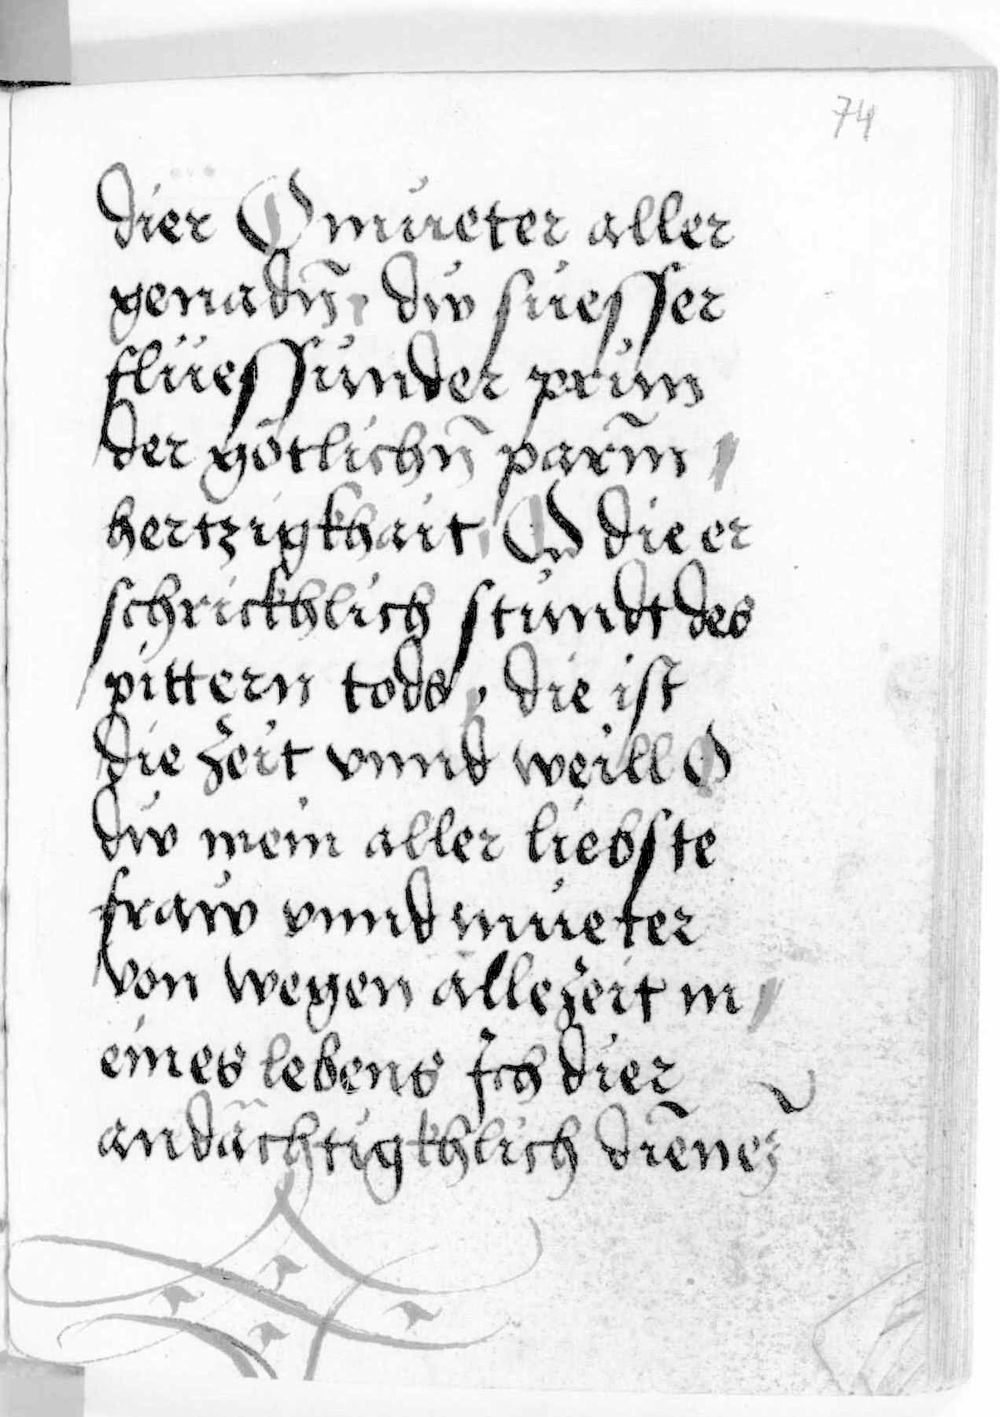 74
dier O mueter aller
genadn̄, dw suesser
fluessunder prun
der götlichn̄ parm̄
hertzigkhait O die er
schrickhlich stundt des
pittern tods, die ist
die zeit vnnd weill O
dw mein aller liebste
fraw vnnd mueter
von wegen alle zeit m
eines lebens Ich dier
andächtigkhlich dienē